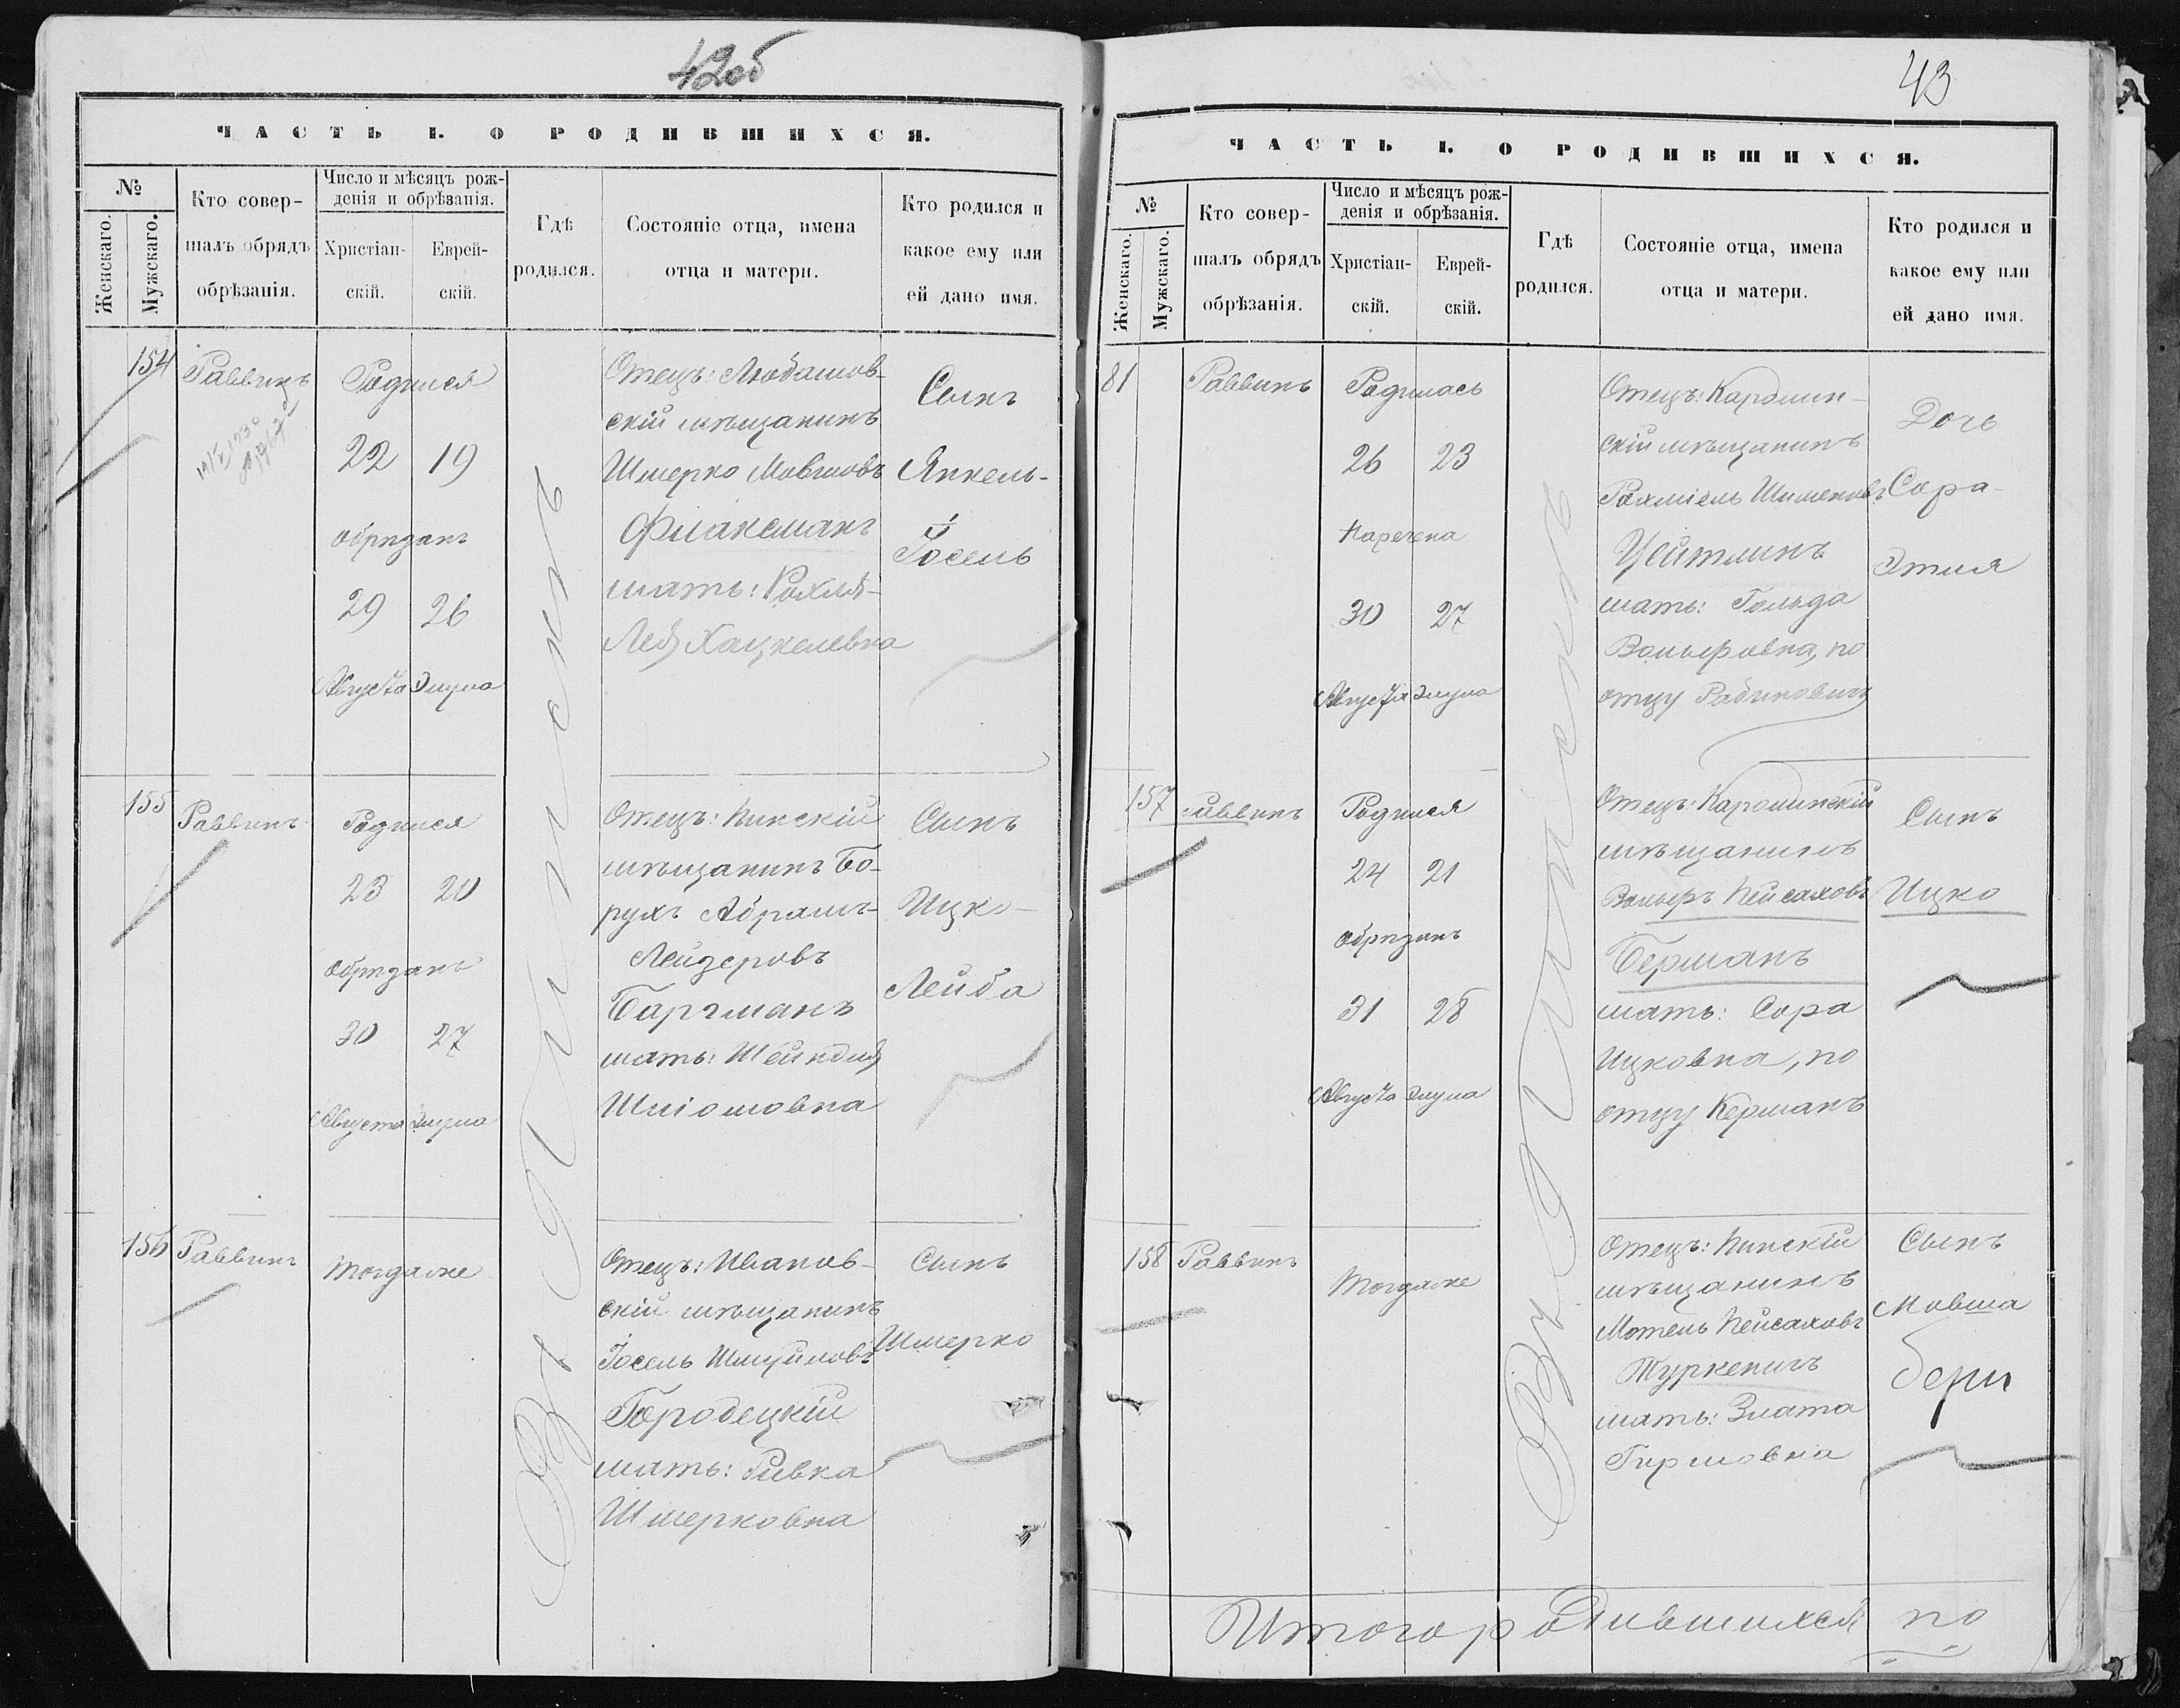 42об
ЧАСТЬ I. О РОДИВШИХСЯ.
№
Женскаго.
Мужскаго.
Кто совер-
шалъ обрядъ
обрѣзанія.
Число и мѣсяцъ рож-
денія и обрѣзанія.
Христіан-
скій.
Еврей-
скій.
Гдѣ
родился.
Состояніе отца, имена
отца и матери.
Кто родился и
какое ему или
ей дано имя.
154
Раввинъ
Родился
22 19
обрѣзанъ
29 26
Августа Элула
Отецъ: Любашов-
скій мѣщанинъ
Шмерко Мовшовъ
Флаксманъ
мать: Рохля-
Лея Хацкелевна
Сынъ
Янкель-
Іосель
155
Раввинъ
Родился
23 20
обрѣзанъ
30 27
Августа Элула
Отецъ: Пинскій
мѣщанинъ Бо-
рухъ Абрамъ-
Лейзеровъ
Баргманъ
мать: Шейндля
Шліомовна
Сынъ
Ицко-
Лейба
156
Раввинъ
Тогда же
Отецъ: Иванов-
скій мѣщанинъ
Іосель Шмуйловъ
Городецкій
мать: Ривка
Шмерковна
Сынъ
Шмерко
Въ Пинскѣ
43
ЧАСТЬ I. О РОДИВШИХСЯ.
№
Женскаго.
Мужскаго.
Кто совер-
шалъ обрядъ
обрѣзанія.
Число и мѣсяцъ рож-
денія и обрѣзанія.
Христіан-
скій.
Еврей-
скій.
Гдѣ
родился.
Состояніе отца, имена
отца и матери.
Кто родился и
какое ему или
ей дано имя.
81
Раввинъ
Родилась
26 23
Наречена
30 27
Августа Элула
Отецъ: Каролин-
скій мѣщанинъ
Рахміель Шименовъ
Цейтлинъ
мать: Гольда
Вольфовна, по
отцу Рабиновичъ
Дочь
Сора-
Этля
157
Раввинъ
Родился
24 21
обрѣзанъ
31 28
Августа Элула
Отецъ: Каролинскій
мѣщанинъ
Вольфъ Пейсаховъ
Берманъ
мать: Сора
Ицковна, по
отцу Керманъ
Сынъ
Ицко
158
Раввинъ
Тогда же
Отецъ: Пинскій
мѣщанинъ
Мотель Пейсаховъ
Туркеничъ
мать: Злата
Гиршовна
Сынъ
Мовша
бери
Въ Пинскѣ
Итого родившихся по